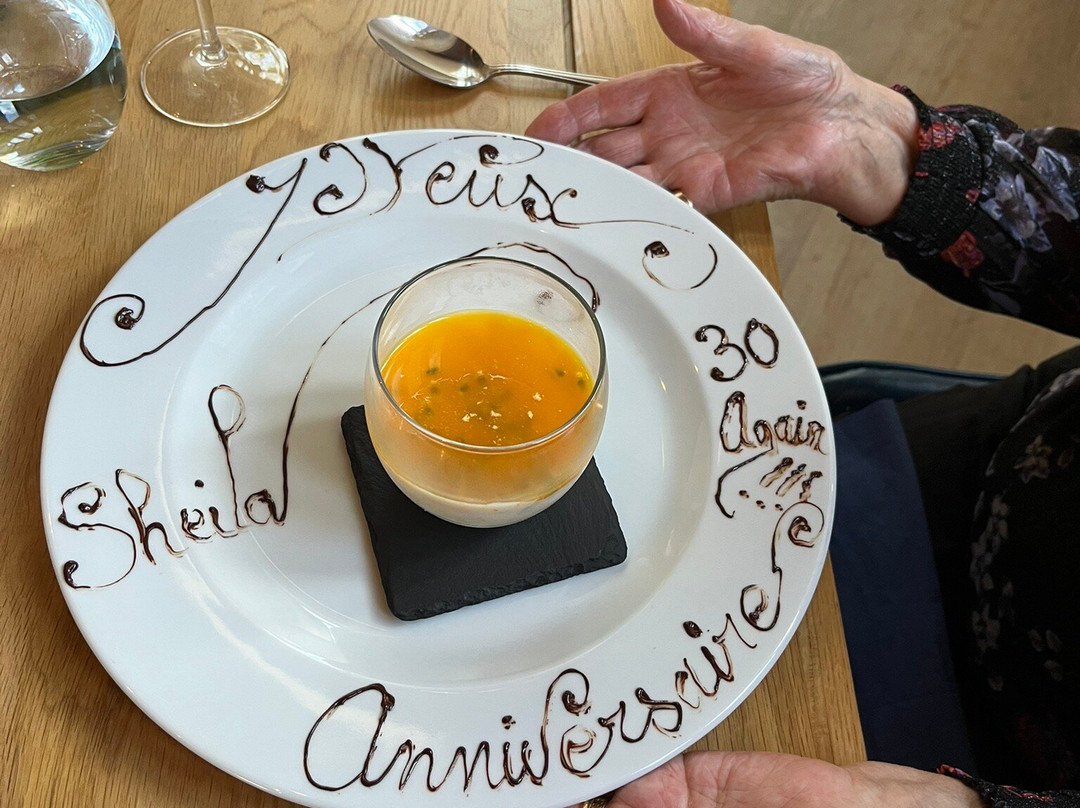 Joyeux
30
Again
!!!!
Sheila
Anniversaire